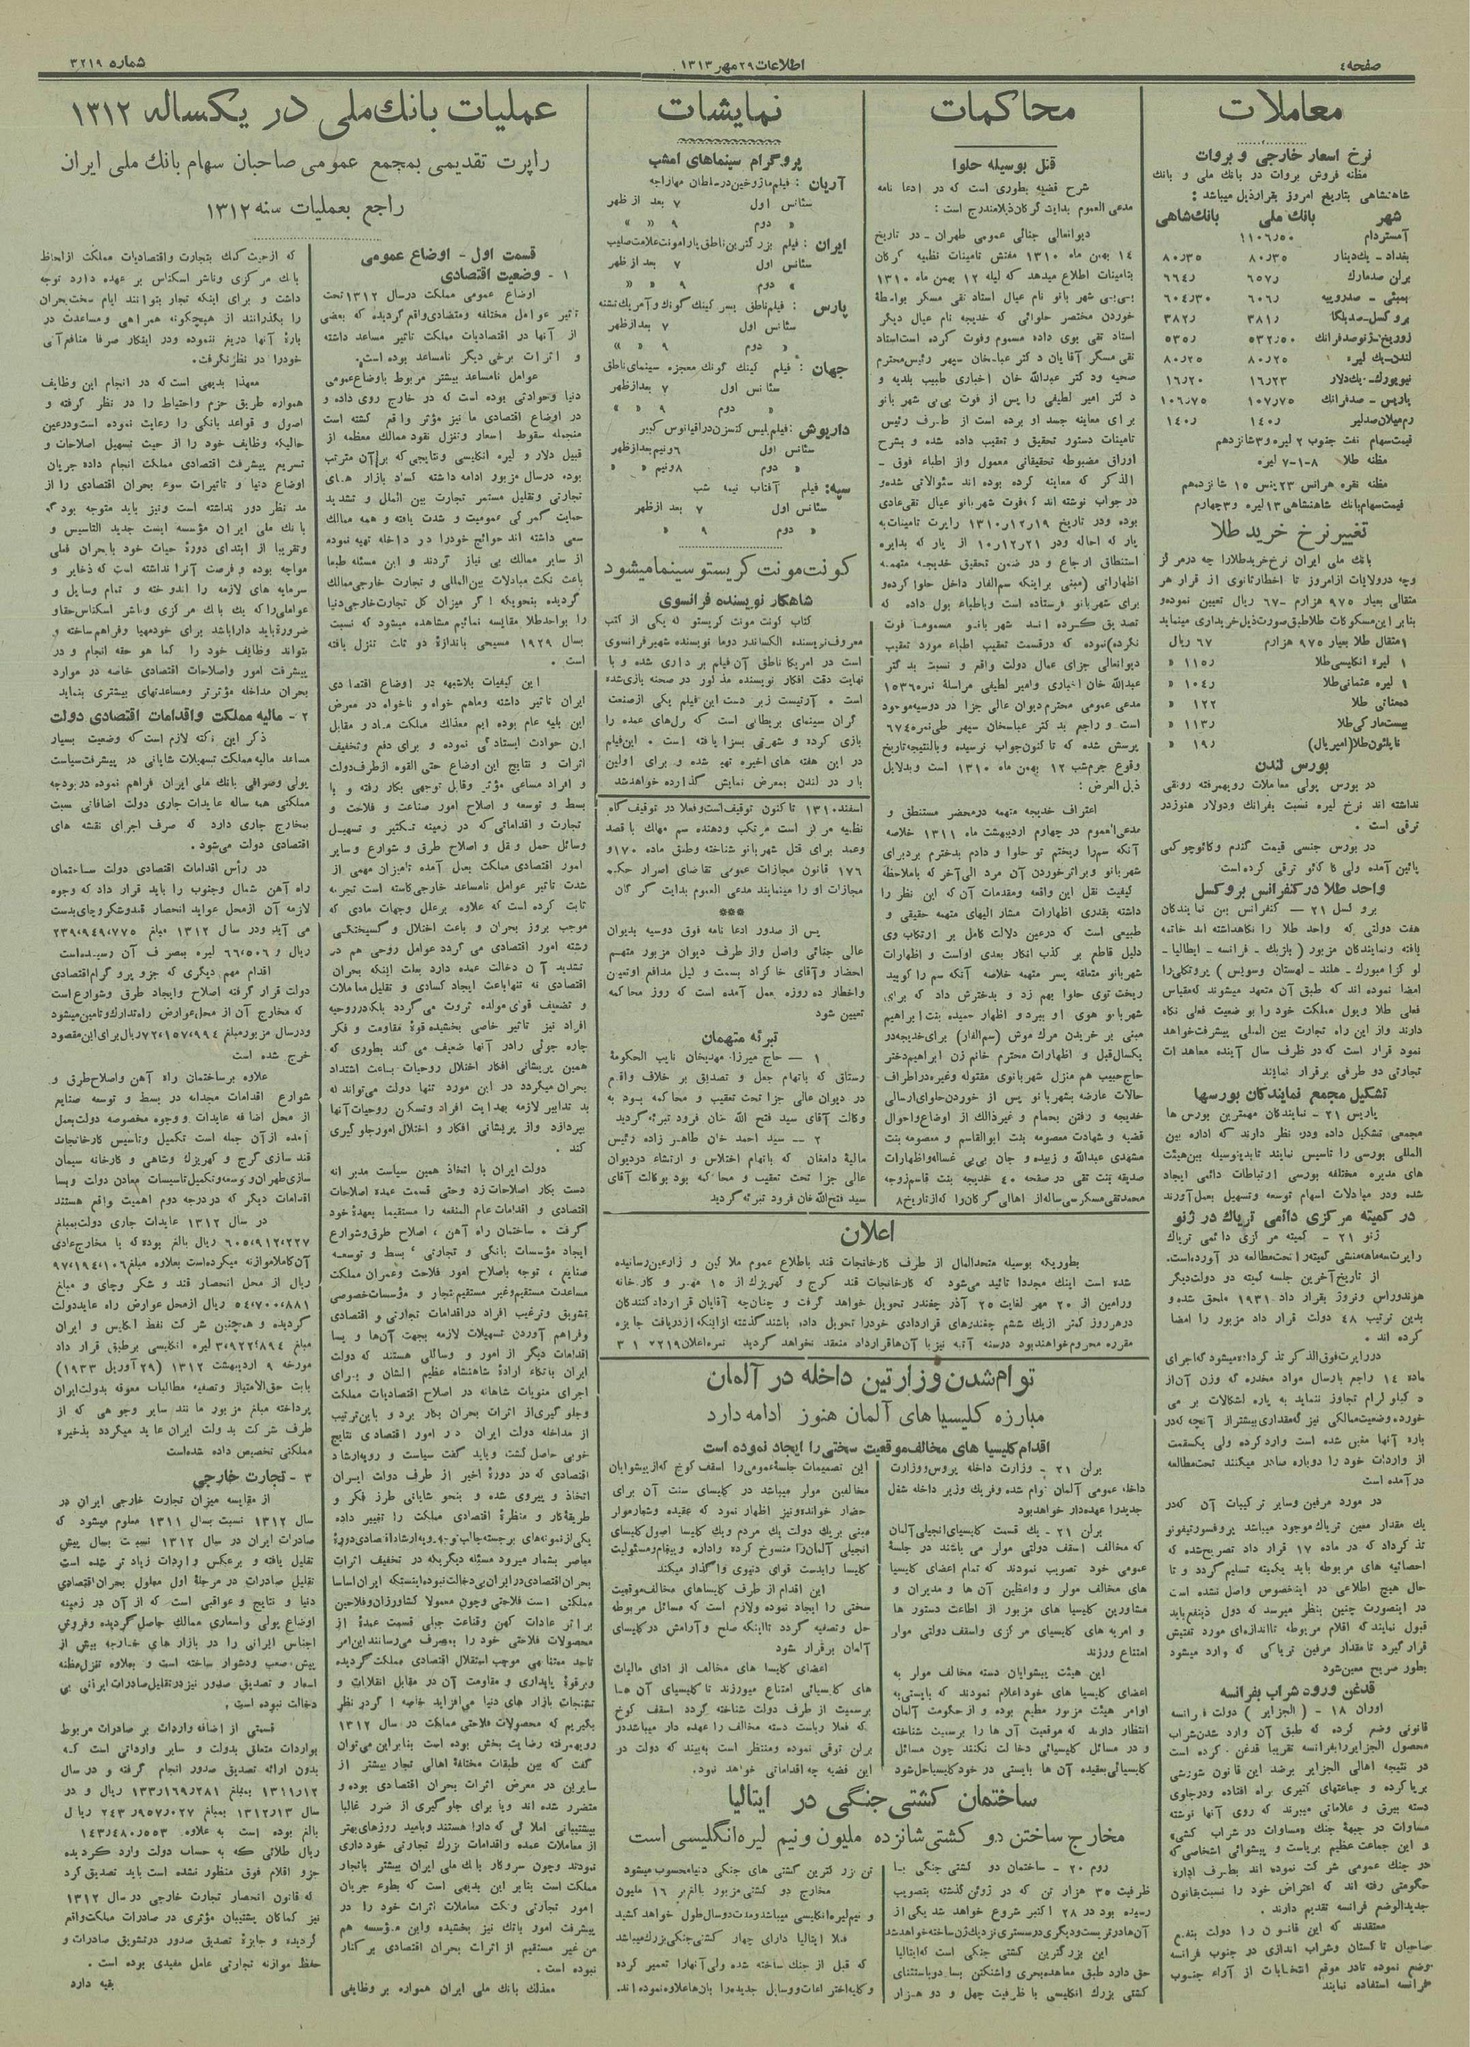 صفحه٤
اطلاعات ۲۹ مهر ۱۳۱۳
شماره ۳۲۱۹
معاملات
نرخ اسعار خارجی و بروات
مظنه فروش بروات در بانك ملی و بانك
شاهنشاهی بتاریخ امروز بقرار ذیل میباشد :
شهر بانك ملی بانك شاهی
آمستردام ۱۱۰۶٫۵۰
بغداد - یكدینار ۸۰٫۳۵ ۸۰٫۳۵
برلن صدمارك ۶۵۷٫ ۶۶٤٫
بمبئی - صدروپیه ۶۰۶٫ ۶۰٤٫۳۰
بروكسل - صدبلگا ۳۸۱٫ ۳۸۲٫
لندن - یك لیره ۸۰٫۲۵ ۸۰٫۲۵
نیویورك - یكدلار ۱۶٫۲۳ ۱۶٫۲۰
پاریس - صدفرانك ۱۰۷٫۷۵ ۱۰۶٫۷۵
رم میلان صدلیر ۱٤۰٫ ۱٤۰٫
قیمت سهام نفت جنوب ۲ لیره و ۳ شانزدهم
مظنه طلا ۸-۱-۷ لیره
مظنه نقره هرانس ۲۳ پنس ۱۵ شانزدهم
قیمت سهام بانك شاهنشاهی ۱۳ لیره و ۳ چهارم
تغییر نرخ خرید طلا
بانك ملی ایران نرخ خرید طلا را چه در مركز
وچه در ولایات از امروز تا اخطار ثانوی از قرار هر
مثقالی بعیار ۹۷۵ هزارم ۶۷- ریال تعیین نموده و
بنابر این مسكوكات طلا طبق صورت ذیل خریداری مینماید
۱ مثقال طلا بعیار ۹۷۵ هزارم ۶۷ ریال
۱ لیره انگلیسی طلا ۱۱۵٫ «
۱ لیره عثمانی طلا ۱۰٤٫ «
دهمناتی طلا ۱۲۲ «
بیست ماركی طلا ۱۱۳٫ «
ناپلئون طلا (امپریال) ۱۹٫ «
بورس لندن
در بورس پولی معاملات رویهمرفته رونقی
نداشته اند نرخ لیره نسبت بفرانك و دولار هنوز در
ترقی است .
در بورس جنسی قیمت گندم و كائوچو كمی
پائین آمده ولی كاكائو ترقی كرده است
واحد طلا در كنفرانس بروكسل
بروكسل ۲۱ — كنفرانس بین نمایندگان
هفت دولتی كه واحد طلا را نگاهداشته اند خاتمه
یافته و نمایندگان مزبور ( بلژیك - فرانسه - ایطالیا -
لوكزامبورك - هلند - لهستان وسویس ) پروتكلی را
امضا نموده اند كه طبق آن متعهد میشوند كه مقیاس
فعلی طلا و پول مملكت خود را بوضعیت فعلی نگاه
دارند و از این راه تجارت بین المللی پیشرفت خواهد
نمود قرار است كه در ظرف سال آینده معاهدات
تجارتی دو طرفی برقرار نمایند
تشكیل مجمع نمایندگان بورسها
پاریس ۲۱ - نمایندگان مهمترین بورس ها
مجمعی تشكیل داده و در نظر دارند كه اداره بین
المللی بورسی را تاسیس نمایند تا بدینوسیله بین هیئت
های مدیره مختلفه بورسی ارتباطات دائمی ایجاد
شده و در مبادلات اسهام توسعه و تسهیل بعمل آورند
در كمیته مركزی دائمی تریاك در ژنو
ژنو ۲۱ - كمیته مركزی دائمی تریاك
راپرت سه ماهه منشی كمیته را تحت مطالعه در آورده است.
از تاریخ آخرین جلسه كمیته دو دولت دیگر
هوندوراس و نروژ بقرار داد ۱۹۳۱ ملحق شده و
بدین ترتیب ٤۸ دولت قرار داد مزبور را امضا
كرده اند .
در راپرت فوق الذكر تذكر داده میشود كه اجرای
ماده ۱٤ راجع بارسال مواد مخدره كه وزن آن از
و كیلو گرام تجاوز ننماید به پاره اشكالات بر می
خورده وضعیت ممالكی نیز كه مقداری بیشتر از آنچه كه در
باره آنها معین شده است وارد كرده ولی یكقسمت
از واردات خود را دوباره صادر میكنند تحت مطالعه
در آمده است
در مورد مرفین و سایر تركیبات آن كه در
یك مقدار معین تریاك موجود میباشد پرفسور تیفونو
تذكر داد كه در ماده ۱۷ قرار داد تصریح شده كه
احصائیه های مربوطه باید بكمیته تسلیم گردد و تا
حال هیچ اطلاعی در اینخصوص واصل نشده است
در اینصورت چنین بنظر میرسد كه دول ذینفع باید
قبول نمایند كه اقلام مربوطه تا اندازه ای مورد تفتیش
قرار گیرد تا مقدار مرفین تریاكی كه وارد میشود
بطور صریح معین شود
قدغن ورود شراب بفرانسه
اوران ۱۸ - ( الجزایر ) دولت فرانسه
قانونی وضع كرده كه طبق آن وارد شدن شراب
محصول الجزایر را بفرانسه تقریبا قدغن كرده است
در نتیجه اهالی الجزایر برضد این قانون شورشی
برپا كرده و جماعتهای كثیری براه افتاده و در جلوی
دسته بیرق و علاماتی میبرند كه روی آنها نوشته
مساوات در جبهه جنك «مساوات در شراب كشی»
و این جماعت عظیم بریاست و پیشوائی اشخاصی كه
در جنك عمومی شركت نموده اند بطرف اداره
حكومتی رفته اند كه اعتراض خود را نسبت بقانون
جدید الوضع فرانسه تقدیم دارند .
معتقدند كه این قانون را دولت بنفع
صاحبان تاكستان و شراب اندازی در جنوب فرانسه
وضع نموده تا در موقع انتخابات از آراء جنوب
فرانسه استفاده نمایند
محاكمات
قتل بوسیله حلوا
شرح قضیه بطوری است كه در ادعا نامه
مدعی العموم بدایت گرگان ذیلا مندرج است :
دیوانعالی جنائی عمومی طهران - در تاریخ
۱٤ بهمن ماه ۱۳۱۰ مفتش تامینات نظمیه گرگان
بتامینات اطلاع میدهد كه لیله ۱۲ بهمن ماه ۱۳۱۰
بی بی شهر بانو نام عیال استاد نقی مسگر بواسطهٔ
خوردن مختصر حلوائی كه خدیجه نام عیال دیگر
استاد تقی بوی داده مسموم وفوت كرده است استاد
نقی مسگر آقایان دكتر عباسخان سپهر رئیس محترم
صحیه و دكتر عبدالله خان اخباری طبیب بلدیه و
دكتر امیر لطیفی را پس از فوت بی بی شهر بانو
برای معاینه جسد او برده است از طرف رئیس
تامینات دستور تحقیق و تعقیب داده شده و بشرح
اوراق مضبوطه تحقیقاتی معمول و از اطباء فوق -
الذكر كه معاینه كرده بوده اند سئوالاتی شده و
در جواب نوشته اند كه فوت شهر بانو عیال تقی عادی
بوده و در تاریخ ۱۳۱۰٫۱۲٫۱۹ راپرت تامینات به
پاركه احاله و در ۱۰٫۱۲٫۲۱ از پاركه بدایره
استنطاق ارجاع و در ضمن تحقیق خدیجه متهمه
اظهاراتی (مبنی براینكه سم الفار داخل حلوا كرده و
برای شهر بانو فرستاده است و باطباء پول داده كه
تصدیق كرده اند شهر بانو مسموما فوت
نكرده) نموده كه در قسمت تعقیب اطباء مورد تعقیب
دیوانعالی جزای عمال دولت واقع و نسبت بدكتر
عبدالله خان اخباری و امیر لطیفی مراسلهٔ نمره ۱۵۳۶۰
مدعی عمومی محترم دیوان عالی جزا در دوسیه موجود
است و راجع بدكتر عباسخان سپهر طی نمره ۶۷٤۰
پرسش شده كه تاكنون جواب نرسیده و بالنتیجه تاریخ
وقوع جرم شب ۱۲ بهمن ماه ۱۳۱۰ است و بدلایل
ذیل العرض :
اعتراف خدیجه متهمه در محضر مستنطق و
مدعی العموم در چهارم اردیبهشت ماه ۱۳۱۱ خلاصه
آنكه سم را ریختم تو حلوا و دادم بدخترم برد برای
شهربانو و براثر خوردن آن مرد الی آخر كه باملاحظهٔ
كیفیت نقل این واقعه و مقدمات آن كه این نظر را
داشته بقدری اظهارات مشار الیهای متهمه حقیقی و
طبیعی است كه در عین دلالت كامل بر ارتكاب وی
دلیل قاطع بر كذب انكار بعدی اواست و اظهارات
شهربانو متعلقه پسر متهمه خلاصه آنكه سم را كوبید
ریخت توی حلوا بهم زد و بدخترش داد كه برای
شهربانو هوی او ببرد و اظهار حمیده بنت ابراهیم
مبنی بر خریدن مرك موش (سم الفار) برای خدیجه در
یكسال قبل و اظهارات محترم خانم زن ابراهیم دختر
حاج حبیب هم منزل شهربانوی مقتوله وغیره در اطراف
حالات عارضه بشهربانو پس از خوردن حلوای ارسالی
خدیجه و رفتن بحمام و غیر ذالك از اوضاع و احوال
قضیه و شهادت معصومه بنت ابوالقاسم و معصومه بنت
مشهدی عبدالله و زبیده و جان بی بی غساله و اظهارات
صدیقه بنت تقی در صفحه ٤۰ خدیجه بنت قاسم زوجه
محمد تقی مسگر سی ساله از اهالی گرگان را كه از تاریخ ۸
نمایشات
پروگرام سینماهای امشب
آریان :
سئانس اول ۷ بعد از ظهر
« دوم ۹ « «
ایران :
سئانس اول ۷ بعد از ظهر
« دوم ۹ « «
پارس : فیلم ناطق پسر كینك كونك و آمریك تشنه
سئانس اول ۷ بعد از ظهر
« دوم ۹ « «
جهان : فیلم كینك كونك معجزه سینمای ناطق
سئانس اول ۷ بعد از ظهر
« دوم ۹ « «
داریوش :
سئانس اول ۶ ونیم بعد از ظهر
« دوم ۸ ونیم « «
سپه : فیلم آفتاب نیمه شب
سئانس اول ۷ بعد از ظهر
« دوم ۹ « «
كونت مونت كریستو سینما میشود
شاهكار نویسنده فرانسوی
كتاب كونت مونت كریستو كه یكی از كتب
معروف نویسنده الكساندر دوما نویسنده شهیر فرانسوی
است در امریكا ناطق آن فیلم بر داری شده و با
نهایت دقت افكار نویسنده مذكور در صحنه بازی شده
است . آرتیست زبر دست این فیلم یكی از صنعت
گران سینمای بریطانی است كه رل های عمده را
بازی كرده و شهرتی بسزا یافته است . این فیلم
در این هفته های اخیره تهیه شده و برای اولین
بار در لندن بمعرض نمایش گذارده خواهد شد
اسفند ۱۳۱۰ تاكنون توقیف است و فعلا در توقیف گاه
نظمیه مركز است مرتكب و دهنده سم مهلك با قصد
و عمد برای قتل شهربانو شناخته و طبق ماده ۱۷۰ و
۱۷۶ قانون مجازات عمومی تقاضای اصرار حكم
مجازات او را مینمایند مدعی العموم بدایت گرگان
***
پس از صدور ادعا نامه فوق دوسیه بدیوان
عالی جنائی واصل و از طرف دیوان مزبور متهم
احضار و آقای خاكزاد بسمت وكیل مدافع او تعیین
و اخطار ده روزه بعمل آمده است كه روز محاكمه
تعیین شود
تبرئه متهمان
۱ — حاج میرزا مهدیخان نایب الحكومهٔ
رستاق كه باتهام جعل و تصدیق بر خلاف واقع
در دیوان عالی جزا تحت تعقیب و محاكمه بود به
وكالت آقای سید فتح الله خان فرود تبرئه گردید
۲ — سید احمد خان طاهر زاده رئیس
مالیهٔ دامغان كه باتهام اختلاس و ارتشاء در دیوان
عالی جزا تحت تعقیب و محاكمه بود بوكالت آقای
سید فتح الله خان فرود تبرئه گردید
اعلان
بطوریكه بوسیله متحدالمال از طرف كارخانجات قند باطلاع عموم ملاكین و زارعین رسانیده
شده است اینك مجددا تائید می شود كه كارخانجات قند كرج و كهریزك از ۱۵ مهر و كارخانه
ورامین از ۲۰ مهر لغایت ۲۵ آذر چغندر تحویل خواهد گرفت و چنان چه آقایان قراردادكنندگان
در هر روز كمتر از یك ششم چغندرهای قراردادی خود را تحویل داده باشند گذشته از اینكه از دریافت جایزه
مقرره محروم خواهند بود در سنه آتیه نیز با آن ها قرارداد منعقد نخواهد گردید نمره اعلان ۷۲۱۹ ۱ ۳
توام شدن وزارتین داخله در آلمان
مبارزه كلیسیا های آلمان هنوز ادامه دارد
اقدام كلیسیا های مخالف موقعیت سختی را ایجاد نموده است
برلن ۲۱ - وزارت داخله پروس و وزارت
داخله عمومی آلمان توام شده و فریك وزیر داخله شغل
جدید را عهده دار خواهد بود
برلن ۲۱ - یك قسمت كلیسیای انجیلی آلمان
كه مخالف اسقف دولتی مولر می باشند در جلسهٔ
عمومی خود تصویب نمودند كه تمام اعضای كلیسیا
های مخالف مولر و واعظین آن ها و مدیران و
مشاورین كلیسیا های مزبور از اطاعت دستور ها
و امریه های كلیسیای مركزی و اسقف دولتی مولر
امتناع ورزند
این هیئت پیشوایان دسته مخالف مولر به
اعضای كلیسیا های خود اعلام نمودند كه بایستی به
اوامر هیئت مزبور مطیع بوده و از حكومت آلمان
انتظار دارند كه موقعیت آن ها را برسمیت شناخته
و در مسائل كلیسیائی دخالت نكنند چون مسائل
كلیسیائی بعقیده آن ها بایستی در خود كلیسیا حل شود
این تصمیمات جلسهٔ عمومی را اسقف كوخ كه از پیشوایان
مخالفین مولر میباشد در كلیسای سنت آن برای
حضار خوانده و نیز اظهار نمود كه عقیده و شعار مولر
مبنی بر یك دولت یك مردم و یك كلیسا اصول كلیسای
انجیلی آلمان را منسوخ كرده و اداره و پیغام و مسئولیت
كلیسا را بدست قوای دنیوی واگذار میكند
این اقدام از طرف كلیساهای مخالف موقعیت
سختی را ایجاد نموده و لازم است كه مسائل مربوطه
حل و تصفیه گردد تا اینكه صلح و آرامش در كلیسای
آلمان برقرار شود
اعضای كلیسا های مخالف از ادای مالیات
های كلیسیائی امتناع میورزند تا كلیسیای آن ها
برسمیت از طرف دولت شناخته گردد اسقف كوخ
كه فعلا ریاست دسته مخالف را عهده دار میباشد در
برلن توقف نموده و منتظر است به بیند كه دولت در
این قضیه چه اقداماتی خواهد نمود.
ساختمان كشتی جنگی در ایتالیا
مخارج ساختن دو كشتی شانزده ملیون ونیم لیره انگلیسی است
روم ۲۰ - ساختمان دو كشتی جنگی با
ظرفیت ۳۵ هزار تن كه در ژوئن گذشته بتصویب
رسیده بود در ۲۸ اكتبر شروع خواهد شد یكی از
آن ها در تریست و دیگری در سستری نزدیك ژن ساخته خواهد شد
این بزرگترین كشتی جنگی است كه ایتالیا
حق دارد طبق معاهده بحری واشنگتن بسازد و باستثنای
كشتی بزرك انگلیسی با ظرفیت چهل و دو هزار
تن بزرگترین كشتی های جنگی دنیا محسوب میشود
مخارج دو كشتی مزبور بالغ بر ۱۶ ملیون
و نیم لیره انگلیسی میباشد و مدت دو سال طول خواهد كشید
فعلا ایتالیا دارای چهار كشتی جنگی بزرك میباشد
كه قبل از جنك ساخته شده ولی آنها را تعمیر كرده
و كلیه اختراعات و وسایل جدیده را بان ها علاوه نموده اند.
عملیات بانك ملی در یكساله ۱۳۱۲
راپرت تقدیمی بمجمع عمومی صاحبان سهام بانك ملی ایران
راجع بعملیات سنه ۱۳۱۲
قسمت اول - اوضاع عمومی
۱ - وضعیت اقتصادی
اوضاع عمومی مملكت در سال ۱۳۱۲ تحت
تاثیر عوامل مختلفه و متضادی واقع گردیده كه بعضی
از آنها در اقتصادیات مملكت تاثیر مساعد داشته
و اثرات برخی دیگر نامساعد بوده است.
عوامل نامساعد بیشتر مربوط باوضاع عمومی
دنیا و حوادثی بوده است كه در خارج روی داده و
در اوضاع اقتصادی ما نیز مؤثر واقع گشته است
منجمله سقوط اسعار و تنزل نقود ممالك معظمه از
قبیل دلار و لیره انگلیسی و نتایجی كه برآن مترتب
بوده در سال مزبور ادامه داشته كساد بازار های
تجارتی و تقلیل مستمر تجارت بین الملل و تشدید
حمایت گمركی عمومیت و شدت یافته و همه ممالك
سعی داشته اند حوائج خود را در داخله تهیه نموده
از سایر ممالك بی نیاز گردند و این مسئله طبعا
باعث نكث مبادلات بین المللی و تجارت خارجی ممالك
گردیده بنحویكه اگر میزان كل تجارت خارجی دنیا
را بواحد طلا مقایسه نمائیم مشاهده میشود كه نسبت
بسال ۱۹۲۹ مسیحی باندازهٔ دو ثلث تنزل یافته
است .
این كیفیات بلاشبهه در اوضاع اقتصادی
ایران تاثیر داشته و ما هم خواه و ناخواه در معرض
این بلیه عام بوده ایم معذلك مملكت ما در مقابل
این حوادث ایستادگی نموده و برای دفع و تخفیف
اثرات و نتایج این اوضاع حتی القوه از طرف دولت
و افراد مساعی مؤثر و قابل توجهی بكار رفته و با
بسط و توسعه و اصلاح امور صناعت و فلاحت و
تجارت و اقداماتی كه در زمینه تكثیر و تسهیل
وسائل حمل و نقل و اصلاح طرق و شوارع و سایر
امور اقتصادی مملكت بعمل آمده تا میزان مهمی از
شدت تاثیر عوامل نامساعد خارجی كاسته است تجربه
ثابت كرده است كه علاوه بر علل و جهات مادی كه
موجب بروز بحران و باعث اختلال و گسیختگی
رشته امور اقتصادی می گردد عوامل روحی هم در
تشدید آن دخالت عمده دارد بعلت اینكه بحران
اقتصادی نه تنها باعث ایجاد كسادی و تقلیل معاملات
و تضعیف قوای مولده ثروت می گردد بلكه در روحیه
افراد نیز تاثیر خاصی بخشیده قوهٔ مقاومت و فكر
چاره جوئی را در آنها ضعیف می كند بطوری كه
همین پریشانی افكار اختلال روحیات باعث اشتداد
بحران میگردد در این مورد تنها دولت می تواند كه
به تدابیر لازمه بهدایت افراد و تسكین روحیات آنها
بپردازد و از پریشانی افكار و اختلال امور جلوگیری
كند .
دولت ایران با اتخاذ همین سیاست مدبرانه
دست بكار اصلاحات زد و حتی قسمت عمده اصلاحات
اقتصادی و اقدامات عام المنفعه را مستقیما بعهدهٔ خود
گرفت . ساختمان راه آهن ، اصلاح طرق و شوارع
ایجاد مؤسسات بانكی و تجارتی ، بسط و توسعه
صنایع ، توجه باصلاح امور فلاحت و عمران مملكت
مساعدت مستقیم و غیر مستقیم تجار و مؤسسات خصوصی
تشویق و ترغیب افراد در اقدامات تجارتی و اقتصادی
و فراهم آوردن تسهیلات لازمه بجهت آن ها و بسا
اقدامات دیگر از امور و وسائلی هستند كه دولت
ایران باتكاء ارادهٔ شاهنشاه عظیم الشان و برای
اجرای منویات شاهانه در اصلاح اقتصادیات مملكت
و جلوگیری از اثرات بحران بكار برد و باین ترتیب
از مداخله دولت ایران در امور اقتصادی نتایج
خوبی حاصل گشت و باید گفت سیاست و رویه ارشاد
اقتصادی كه در دورهٔ اخیر از طرف دولت ایران
اتخاذ و پیروی شده و بنحو شایانی طرز فكر و
طریقهٔ كار و منظرهٔ اقتصادی مملكت را تغییر داده
یكی از نمونه های برجسته جالب توجه رویه ارشاد اقتصادی دورهٔ
معاصر بشمار میرود مسئله دیگریكه در تخفیف اثرات
بحران اقتصادی در ایران بی دخالت نبوده اینستكه ایران اساسا
مملكتی است فلاحتی و چون معمولا كشاورزان و فلاحین
براثر عادات كهن و قناعت جبلی قسمت عمدهٔ از
محصولات فلاحتی خود را بمصرف می رسانند این امر
تا حد معتنابهی موجب استقلال اقتصادی مملكت گردیده
و بر قوهٔ پایداری و مقاومت آن در مقابل انقلابات و
تشنجات بازار های دنیا می افزاید خاصه اگر در نظر
بگیریم كه محصولات فلاحتی مملكت در سال ۱۳۱۲
رویهمرفته رضایت بخش بوده است بنابراین می توان
گفت كه بین طبقات مختلفهٔ اهالی تجار بیشتر از
سایرین در معرض اثرات بحران اقتصادی بوده و
متضرر شده اند و یا برای جلوگیری از ضرر غالبا
بپشتیبانی املاكی كه دارا هستند و بامید روزهای بهتر
از معاملات عمده و اقدامات بزرك تجارتی خودداری
نمودند و چون سروكار بانك ملی ایران بیشتر باتجار
مملكت است بنابر این بدیهی است كه بطوء جریان
امور تجارتی و نكث معاملات اثرات خود را در
پیشرفت امور بانك نیز بخشیده و این مؤسسه هم
من غیر مستقیم از اثرات بحران اقتصادی بركنار
نبوده است .
معذلك بانك ملی ایران همواره بر وظایفی
كه از حیث كمك بتجارت و اقتصادیات مملكت از لحاظ
بانك مركزی و ناشر اسكناس بر عهده دارد توجه
داشت و برای اینكه تجار بتوانند ایام سخت بحران
را بگذرانند از هیچگونه همراهی و مساعدت در
بارهٔ آنها دریغ ننموده و در اینكار صرفا منافع آنی
خود را در نظر نگرفت.
معهذا بدیهی است كه در انجام این وظایف
همواره طریق حزم و احتیاط را در نظر گرفته و
اصول و قواعد بانكی را رعایت نموده است و در عین
حالیكه وظایف خود را از حیث تسهیل اصلاحات و
تسریع پیشرفت اقتصادی مملكت انجام داده جریان
اوضاع دنیا و تاثیرات سوء بحران اقتصادی را از
مد نظر دور نداشته است و نیز باید متوجه بود كه
بانك ملی ایران مؤسسه ایست جدید التاسیس و
وتقریبا از ابتدای دورهٔ حیات خود با بحران فعلی
مواجه بوده و فرصت آنرا نداشته است كه ذخایر و
سرمایه های لازمه را اندوخته و تمام وسایل و
عواملی را كه یك بانك مركزی و ناشر اسكناس حقا و
ضرورة باید دارا باشد برای خود مهیا و فراهم ساخته و
بتواند وظایف خود را كما هو حقه انجام و در
پیشرفت امور و اصلاحات اقتصادی خاصه در موارد
بحران مداخله مؤثرتر و مساعدتهای بیشتری بنماید
۲ - مالیه مملكت و اقدامات اقتصادی دولت
ذكر این نكته لازم است كه وضعیت بسیار
مساعد مالیه مملكت تسهیلات شایانی در پیشرفت سیاست
پولی و صرافی بانك ملی ایران فراهم نموده در بودجه
مملكتی همه ساله عایدات جاری دولت اضافاتی نسبت
بمخارج جاری دارد كه صرف اجرای نقشه های
اقتصادی دولت می شود.
در رأس اقدامات اقتصادی دولت ساختمان
راه آهن شمال و جنوب را باید قرار داد كه وجوه
لازمه آن از محل عواید انحصار قند و شكر و چای بدست
می آید و در سال ۱۳۱۲ مبلغ ۲۳۹٫۹٤۹٫۷۷۵
ریال و ۶۶٫۵۰۶ لیره بمصرف آن رسیده است
اقدام مهم دیگری كه جزو پروگرام اقتصادی
دولت قرار گرفته اصلاح و ایجاد طرق و شوارع است
كه مخارج آن از محل عوارض راه تدارك و تامین میشود
و در سال مزبور مبلغ ۷۲٫۱۵۷٫۹۹٤ ریال برای این مقصود
خرج شده است
علاوه بر ساختمان راه آهن و اصلاح طرق و
شوارع اقدامات مجدانه در بسط و توسعه صنایع
از محل اضافه عایدات و وجوه مخصوصه دولت بعمل
آمده از آن جمله است تكمیل و تاسیس كارخانجات
قند سازی كرج و كهریزك و شاهی و كارخانه سیمان
سازی طهران و توسعه و تكمیل تاسیسات معادن دولت و بسا
اقدامات دیگر كه در درجه دوم اهمیت واقع هستند
در سال ۱۳۱۲ عایدات جاری دولت بمبلغ
۶۰۵٫۹۱۲٫۲۲۷ ریال بالغ بوده كه با مخارج عادی
آن كاملا موازنه میكرده است بعلاوه مبلغ ۹۷٫۱۹٤٫۱۰۶
ریال از محل انحصار قند و شكر و چای و مبلغ
۵٤٫۷۰۰٫۸۸۱ ریال از محل عوارض راه عاید دولت
گردیده و همچنین شركت نفط انگلیس و ایران
مبلغ ۳٫۹۲۲٫۸۹٤ لیره انگلیسی برطبق قرار داد
مورخه ۹ اردیبهشت ۱۳۱۲ (۲۹ آوریل ۱۹۳۳)
بابت حق الامتیاز و تصفیه مطالبات معوقه بدولت ایران
پرداخته مبلغ مزبور مانند سایر وجوهی كه از
طرف شركت بدولت ایران عاید میگردد بذخیره
مملكتی تخصیص داده شده است
۳ - تجارت خارجی
از مقایسه میزان تجارت خارجی ایران در
سال ۱۳۱۲ نسبت بسال ۱۳۱۱ معلوم میشود كه
صادرات ایران در سال ۱۳۱۲ نسبت بسال پیش
تقلیل یافته و برعكس واردات زیاد تر شده است
تقلیل صادرات در مرحلهٔ اول معلول بحران اقتصادی
دنیا و نتایج و عواقبی است كه از آن در زمینه
اوضاع پولی و اسعاری ممالك حاصل گردیده و فروش
اجناس ایرانی را در بازار های خارجه بیش از
پیش صعب و دشوار ساخته است و بعلاوه تنزل مظنه
اسعار و تصدیق صدور نیز در تقلیل صادرات ایرانی بی
دخالت نبوده است .
قسمتی از اضافه واردات بر صادرات مربوط
بواردات متعلق بدولت و سایر وارداتی است كه
بدون ارائه تصدیق صدور انجام گرفته و در سال
۱۳۱۱٫۱۲ بمبلغ ۱۳۳٫۱۶۹٫۲۸۱ ریال و در
سال ۱۳۱۲٫۱۳ بمبلغ ۲٤۳٫۹۵۷٫۰۲۷ ریال
بالغ بوده است به علاوه ۱٤۳٫٤۸۰٫۵۵۳
ریال طلائی كه به حساب دولت وارد گردیده
جزو اقلام فوق منظور نشده است باید تصدیق كرد
كه قانون انحصار تجارت خارجی در سال ۱۳۱۲
نیز كماكان پشتیبان مؤثری در صادرات مملكت واقع
گردیده و جایزهٔ تصدیق صدور در تشویق صادرات و
حفظ موازنه تجارتی عامل مفیدی بوده است .
بقیه دارد